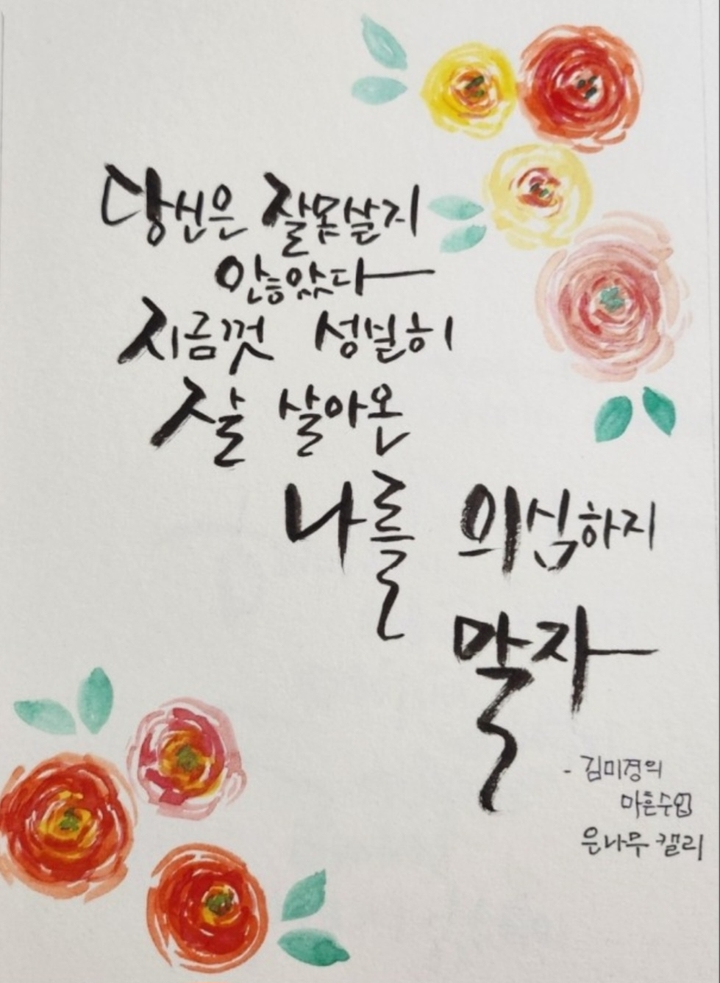 당신은 잘못살지
않았다
지금껏 성실히
잘 살아온
나를 의심하지
말자
- 김미경의
마흔수업
은나무 캘리